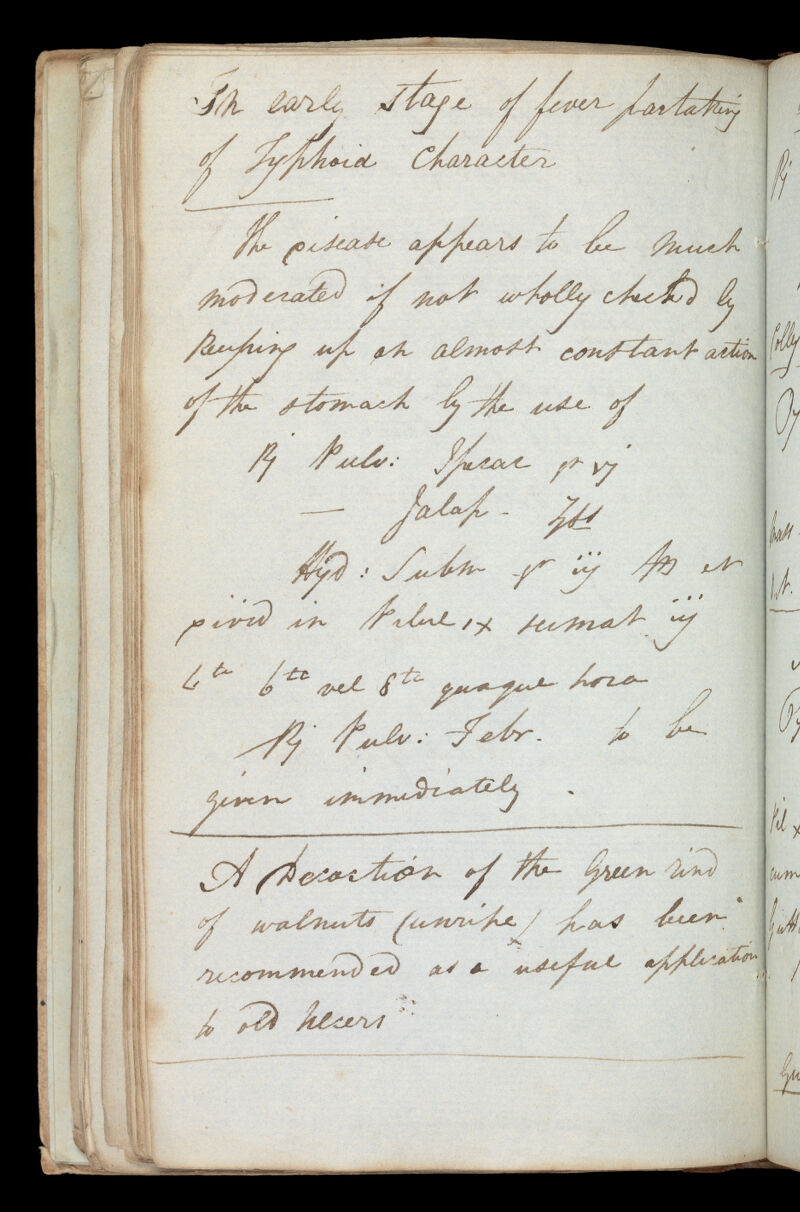 In early stage of fever partaking
of Typhoid Character
The disease appears to be much
moderated if not wholly check'd by
keeping up an almost constant action
of the stomach by the use of
℞ Pulv: Ipecac gr vj
— Jalap - ʒss
Hyd: Subm gr iij et
divid in Pilul ix sumat iij
4ta 6ta vel 8ta quaque hora
℞ Pulv: Febr. to be
given immediately.
A Decoction of the Green rind
of walnuts (unripe) has been
recommended as a useful application
to old ulcers
℞
Colly